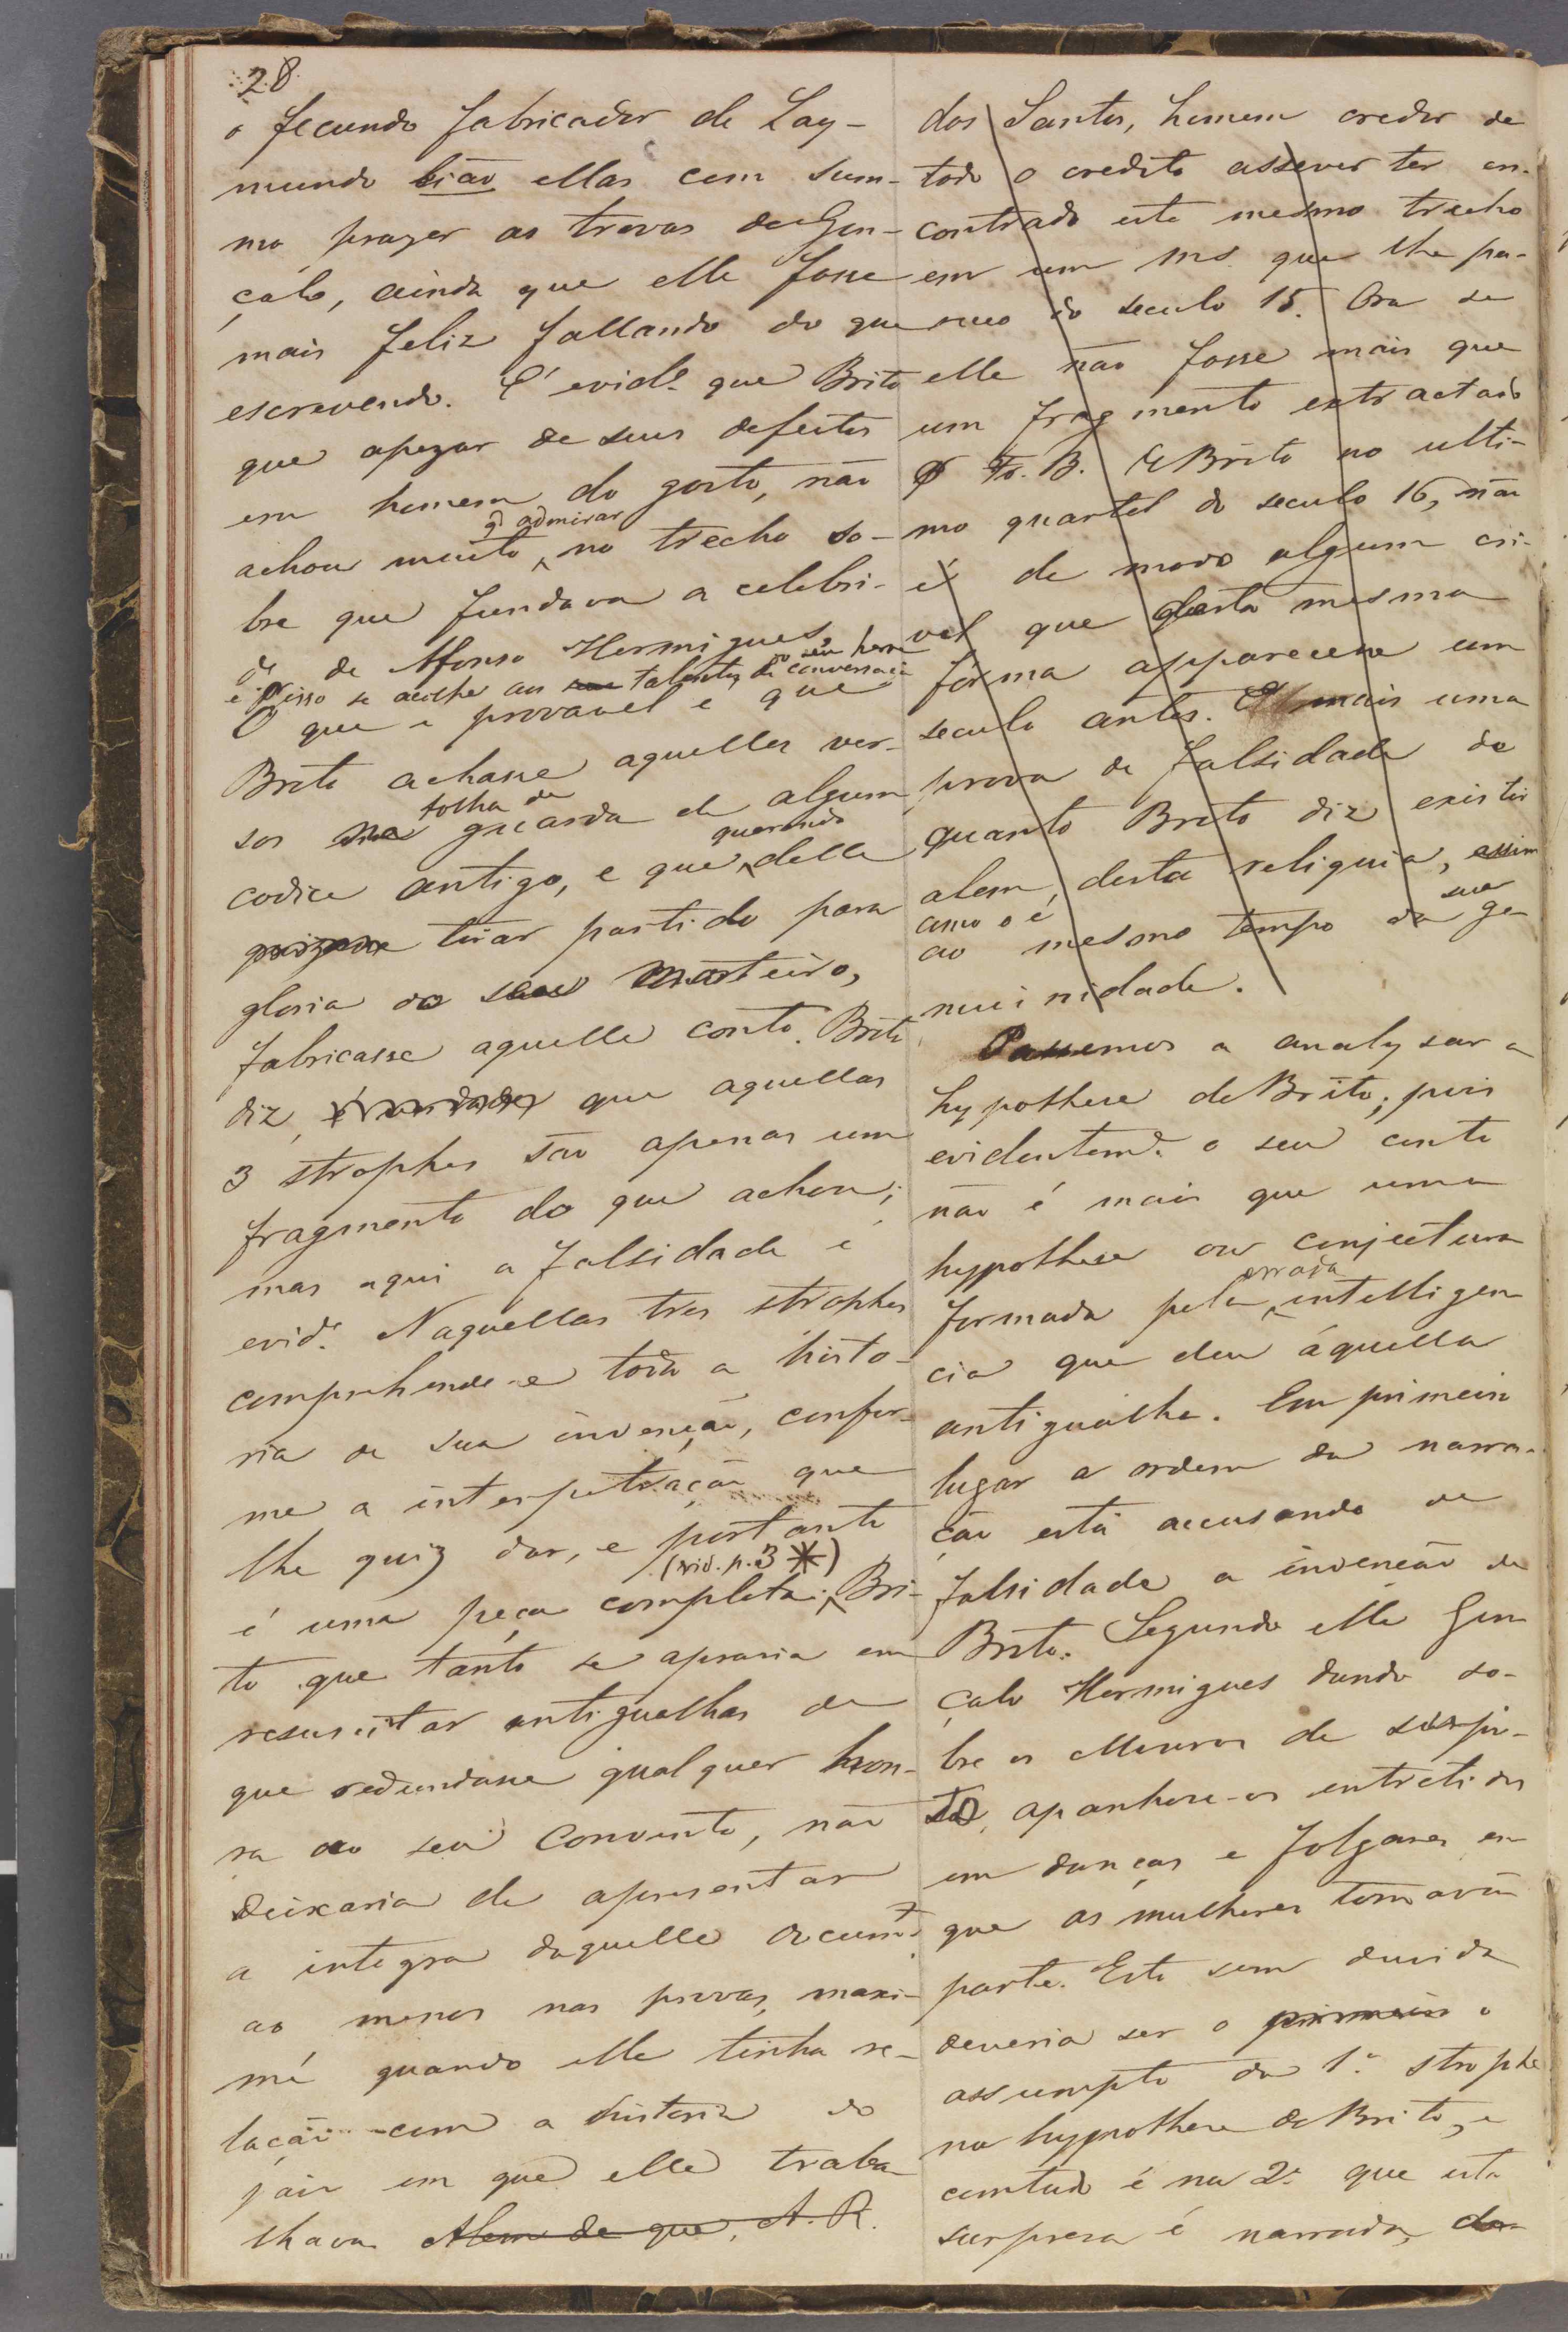 28
o fecundo fabricador de Lay-
mundo lião ellas com sum-
mo prazer as trovas de Gon-
çalo, ainda que elle fosse
mais feliz fallando do que
escrevendo. E' evid.e que Brito
que apezar de seus defeitos
era homem do gosto, não
achou muito q̃ admirar no trecho so-
bre que fundava a celebri-
de de Affonso Hermigues,
e p.r isso se acolhe aos talentos de conversação do seu heroe
O que é provavel é que
Brito achasse aquelles ver-
sos na folha de guarda de algum
codice antigo, e que querendo delle
tirar partido para
gloria do seu mosteiro,
fabricasse aquelle conto. Brito
diz, é verdade, que aquellas
3 strophes são apenas um
fragmento do que achou;
mas aqui a falsidade é
evid.e Naquellas tres strophes
comprehende-se toda a histo-
ria de sua invenção, confor-
me a interpetração que
lhe quiz dar, e portanto
é uma peça completa; (vid. p. 3 *) Bri-
to que tanto se aprasia em
resuscitar antigualhas de
que redundasse qualquer hon-
ra ao seu Convento, não
deixaria de apresentar
a integra daquelle docum.to
ao menos nas provas, maxi-
mé quando elle tinha re-
lação com a historia do
páis em que elle traba-
lhava. Alem de que, A. R.
dos Santos, homem credor de
todo o credito assever ter en-
contrado este mesmo trecho
em um ms. que lhe pa-
receo do seculo 15. Ora se
elle não fosse mais que
um fragmento extractado
p Fr. B. de Brito no ulti-
mo quartel do seculo 16, não
é de modo algum cri-
vel que desta mesma
forma apparecesse um
seculo antes. E' mais uma
prova de falsidade de
quanto Brito diz existir
alem desta reliquia, assim
como o é
ao mesmo tempo da sua ge-
nuinidade.
Passemos a analysar a
hypothese de Brito; pois
evidentem.e o seu conto
não é mais que uma
hypothese ou conjectura
formada pela errada intelligen-
cia que deu áquella
antigualha. Em primeiro
lugar a ordem da narra-
ção está accusando de
falsidade a invenção de
Brito. Segundo elle Gon
çalo Hermigues dando so-
bre os Mouros de surpre-
sa, apanhou-os entretidos
em danças e folgares em
que as mulheres tomavão
parte. Este sem duvida
deveria ser o primeiro o
assumpto da 1.a strophe
na hypothese de Brito, e
comtudo é na 2.a que esta
surpresa é narrada, do-